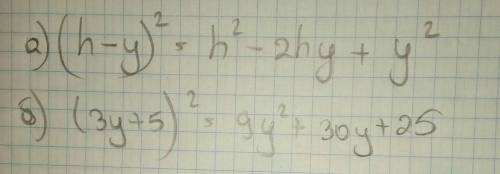 а) (h-y)² = h² - 2hy + y²
б) (3y+5)² = 9y² + 30y + 25